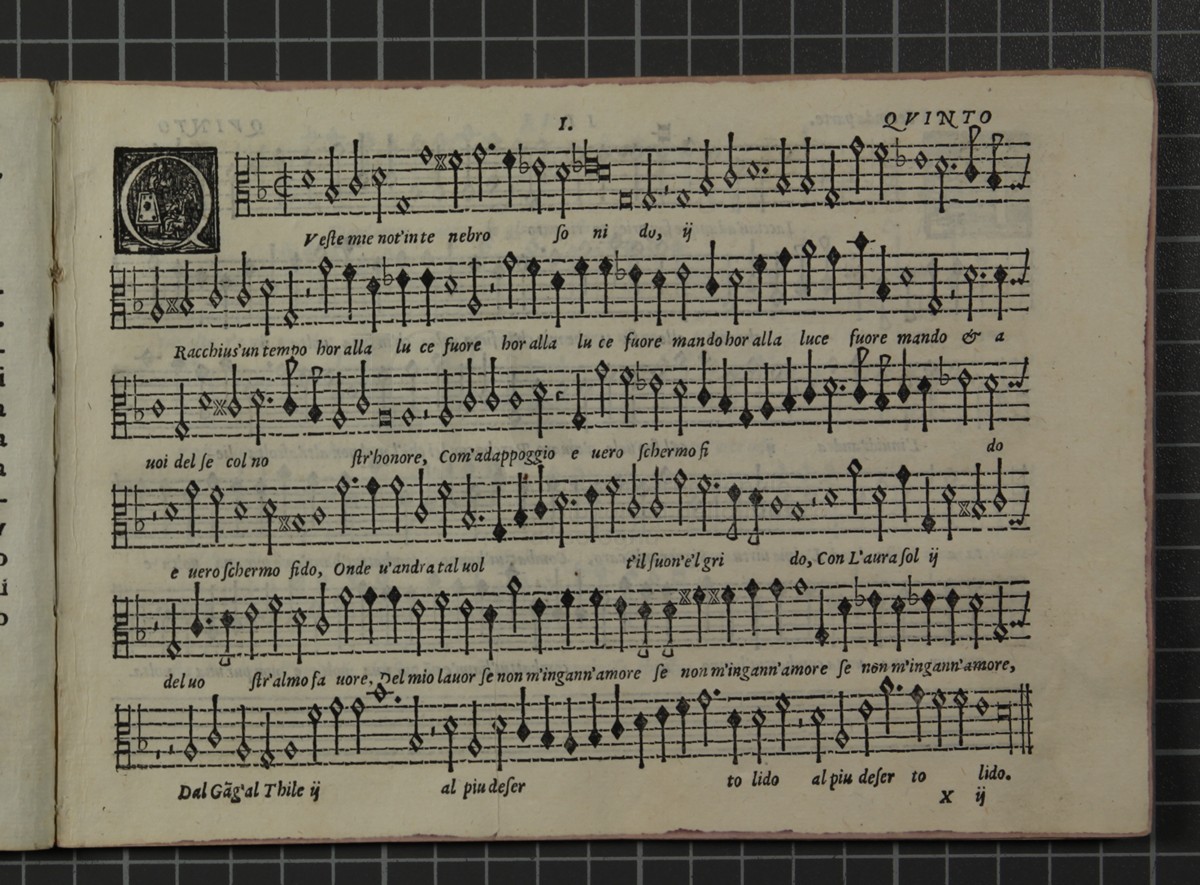 I.
QVINTO
QVeste mie not'in te nebro so ni do, ij
Racchius'un tempo hor alla lu ce fuore hor alla lu ce fuore mando hor alla luce fuore mando & a
uoi del se col no str'honore, Com'ad appoggio e uero schermo fi do
e uero schermo fido, Onde u'andra tal uol t'il suon'e'l gri do, Con L'aura sol ij
del uo str'almo fa uore, Del mio lauor se non m'ingann'amore se non m'ingann'amore se non m'ingann'amore,
Dal Gãg'al Thile ij al piu deser to lido al piu deser to lido.
X ij